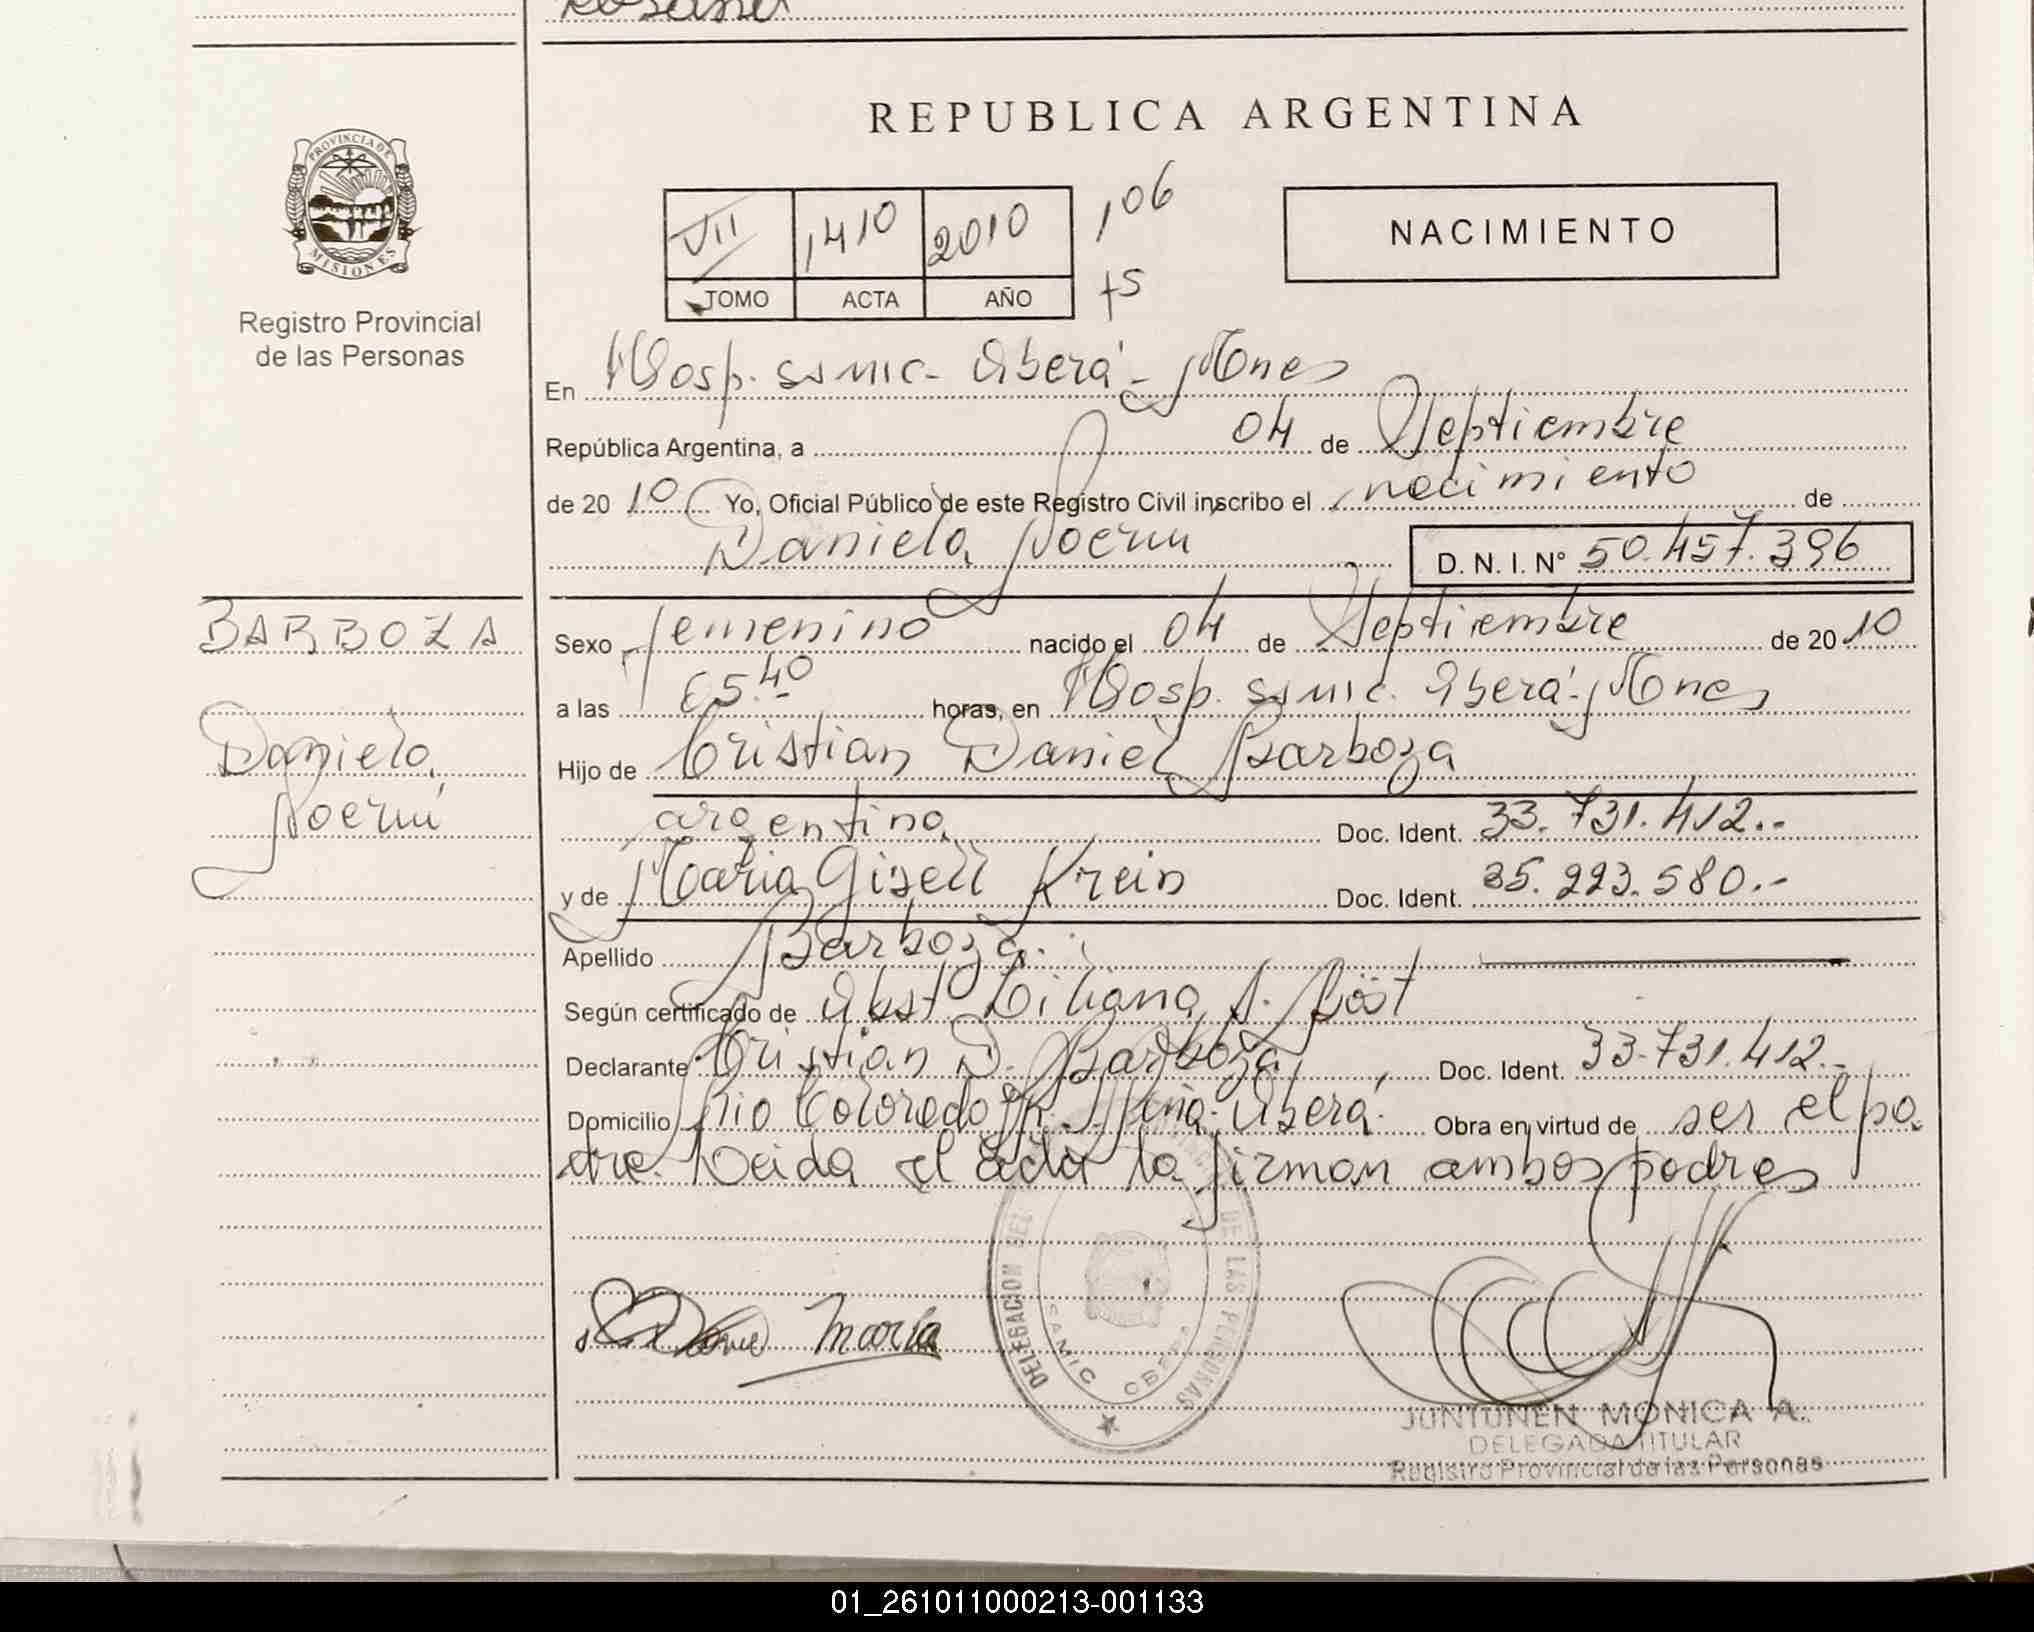 REPUBLICA ARGENTINA
PROVINCIA DE
MISIONES
Registro Provincial
de las Personas
VII 1410 2010 106
TOMO ACTA AÑO +5
NACIMIENTO
En Hosp. SAMIC - Oberá - Mnes
República Argentina, a 04 de Septiembre
de 2010 Yo, Oficial Público de este Registro Civil inscribo el nacimiento de
Daniela Noemí D. N. I. N° 50.457.396
BARBOZA
Daniela
Noemí
Sexo femenino nacido el 04 de Septiembre de 2010
a las 05.40 horas, en Hosp. SAMIC. Oberá - Mnes
Hijo de Cristian Daniel Barboza
argentino Doc. Ident. 33.731.412.-
y de Maria Gisell Krein Doc. Ident. 35.223.580.-
Apellido Barboza.
Según certificado de Obst. Liliana A. Böst
Declarante Cristian D. Barboza, Doc. Ident. 33.731.412.-
Domicilio Rio Colorado Oberá. Obra en virtud de ser el pa
dre. Leida el acta la firman ambos padres
María
DELEGACION DEL DE LAS PERSONAS
SAMIC OBERA
JUNTUNEN MONICA A.
DELEGADA TITULAR
Registro Provincial de las Personas
01_261011000213-001133